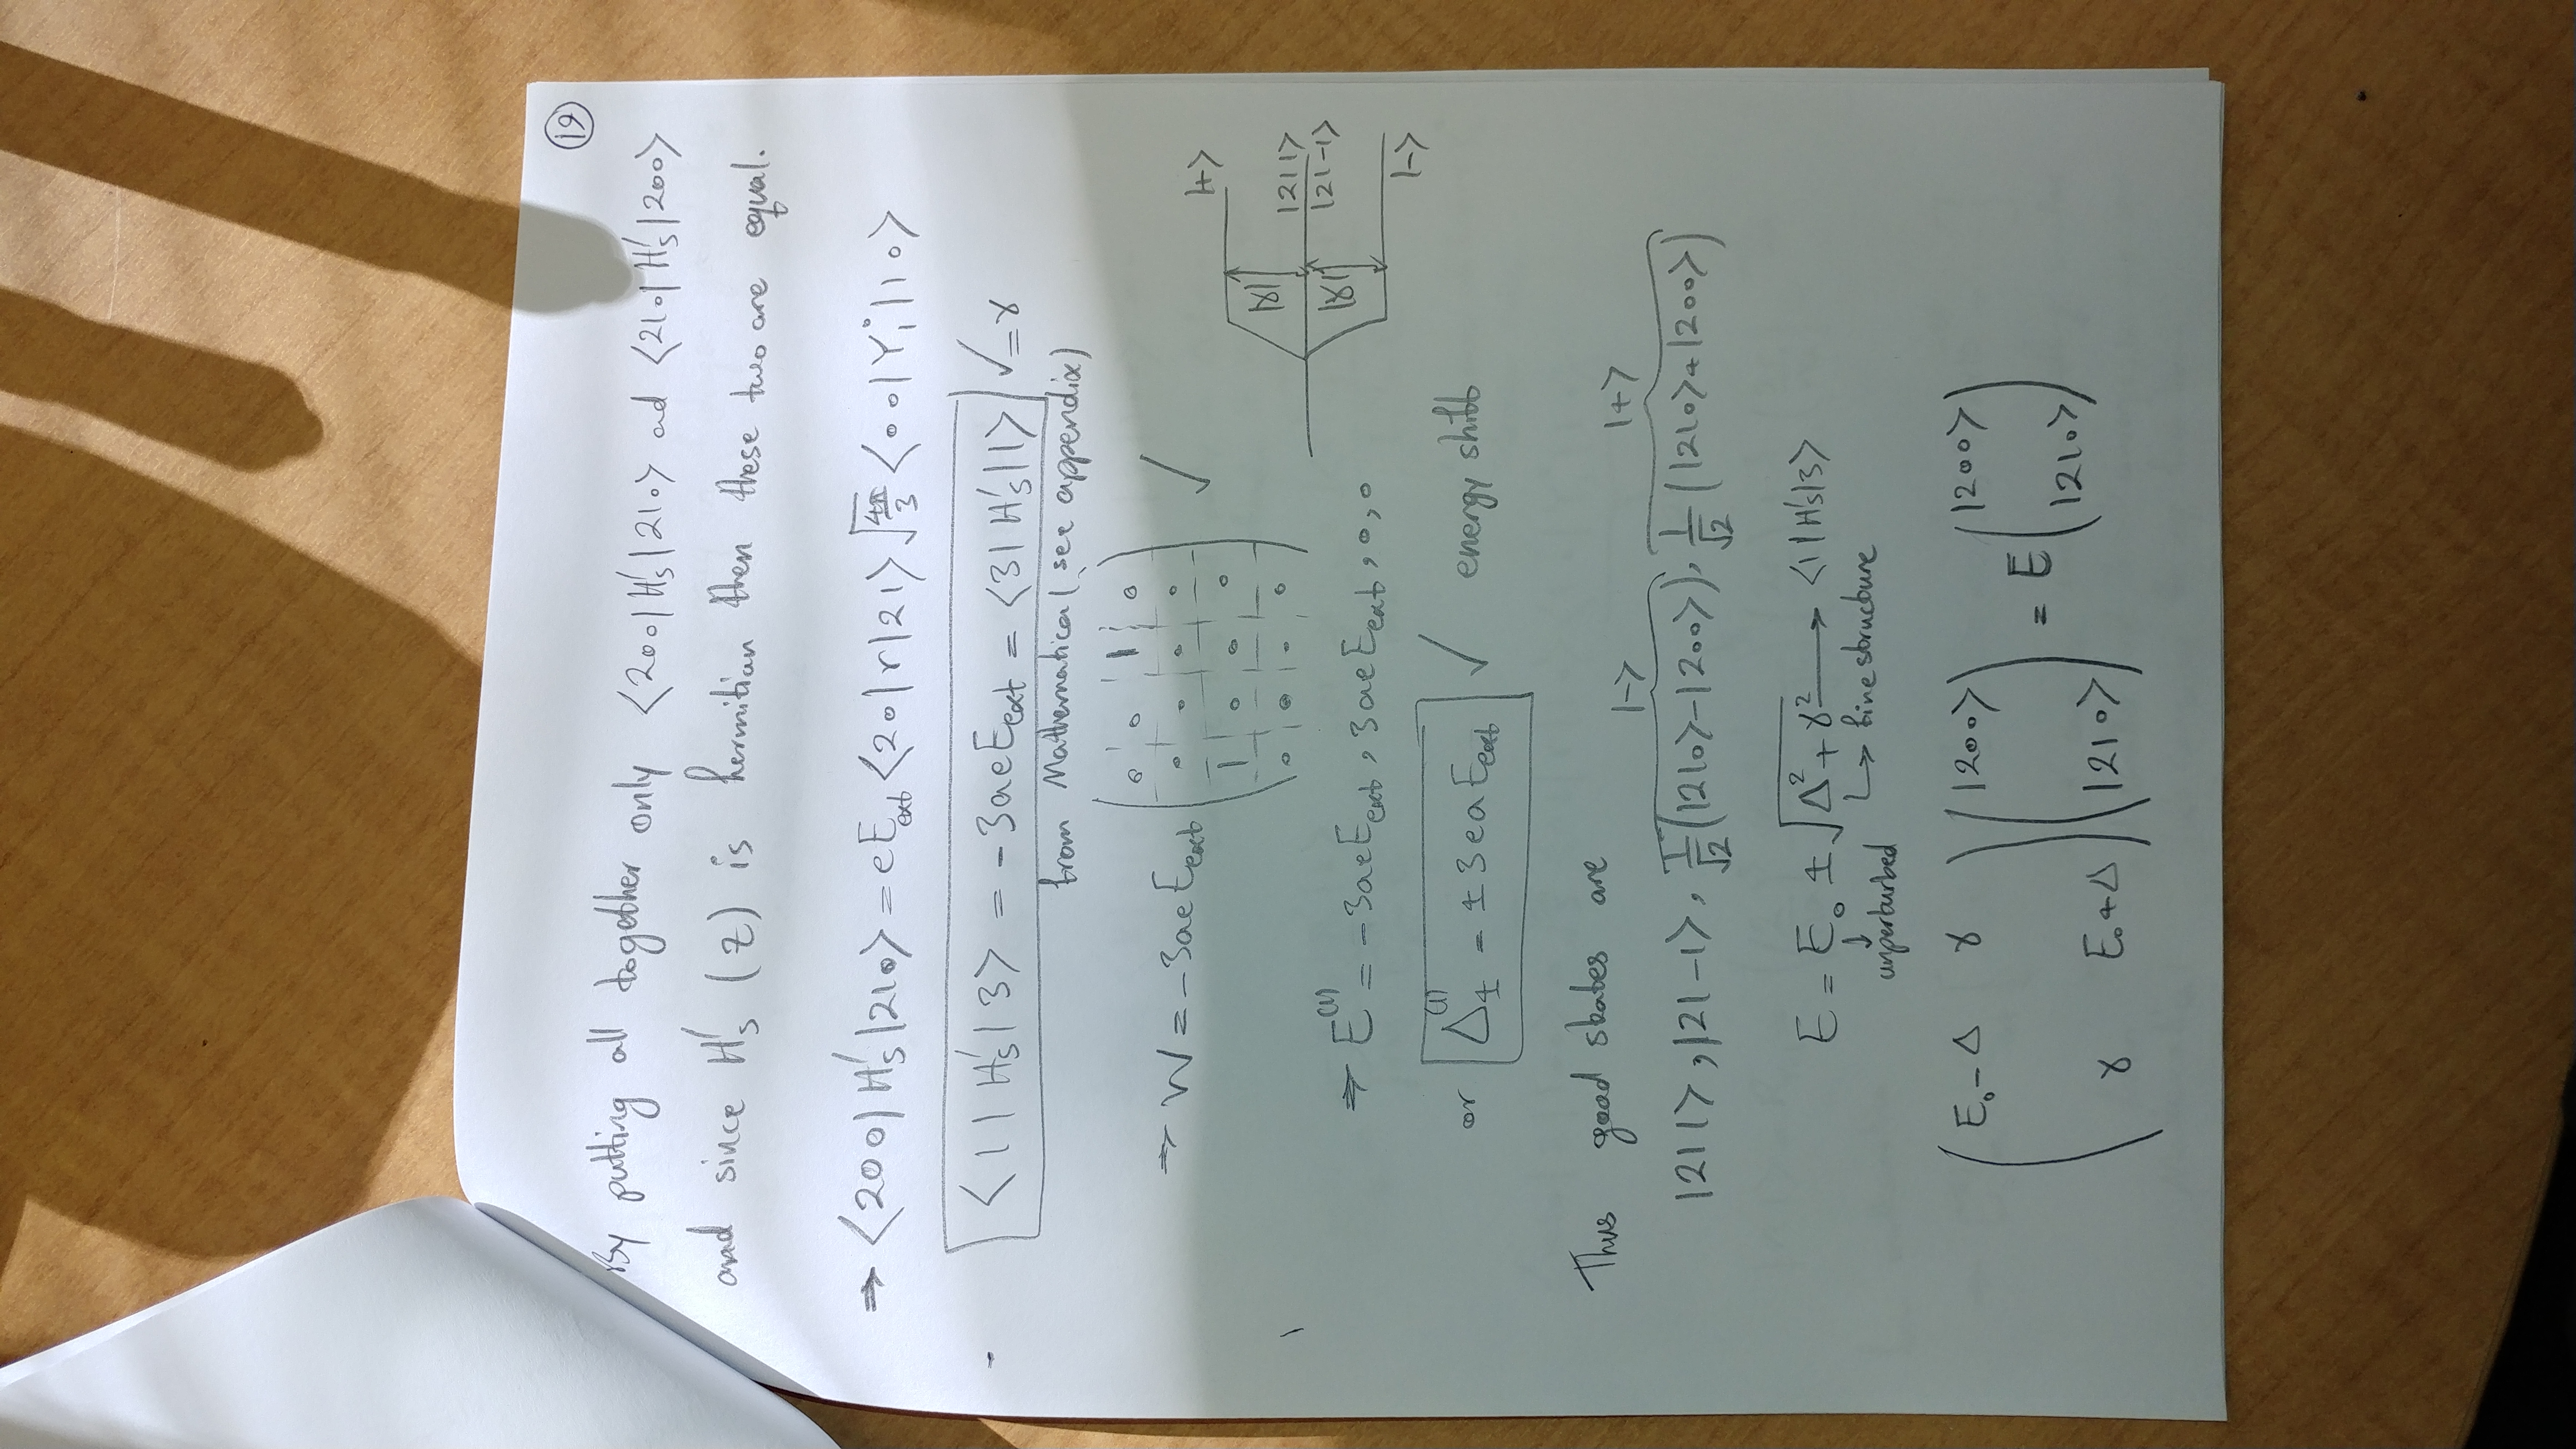 19
By putting all together only ⟨200|H's|210⟩ ad ⟨210|H's|200⟩
and since H's (z) is hermitian then these two are equal.
⇒ ⟨200|H's|210⟩ = eE_ext ⟨20|r|21⟩ √(4π/3) ⟨00|Y₁⁰|10⟩
⟨1|H's|3⟩ = -3aeE_ext = ⟨3|H's|1⟩ ✓ = γ
from Mathematica (see appendix)
⇒ W = -3aeE_ext ✓
0 0 1 0
0 0 0 0
1 0 0 0
0 0 0 0
|+⟩
|γ|
|211⟩
|21-1⟩
|γ|
|-⟩
⇒ E⁽¹⁾ = -3aeE_ext, 3aeE_ext, 0, 0
or Δ±⁽¹⁾ = ±3eaE_ext ✓ energy shift
Thus good states are
|-⟩ |+⟩
|211⟩, |21-1⟩, 1/√2 (|210⟩-|200⟩), 1/√2 (|210⟩+|200⟩)
E = E₀ ± √(Δ²+γ²) → ⟨1|H's|3⟩
↓ unperturbed ↳ fine structure
(E₀-Δ γ) (|200⟩) = E (|200⟩)
(γ E₀+Δ) (|210⟩) (|210⟩)